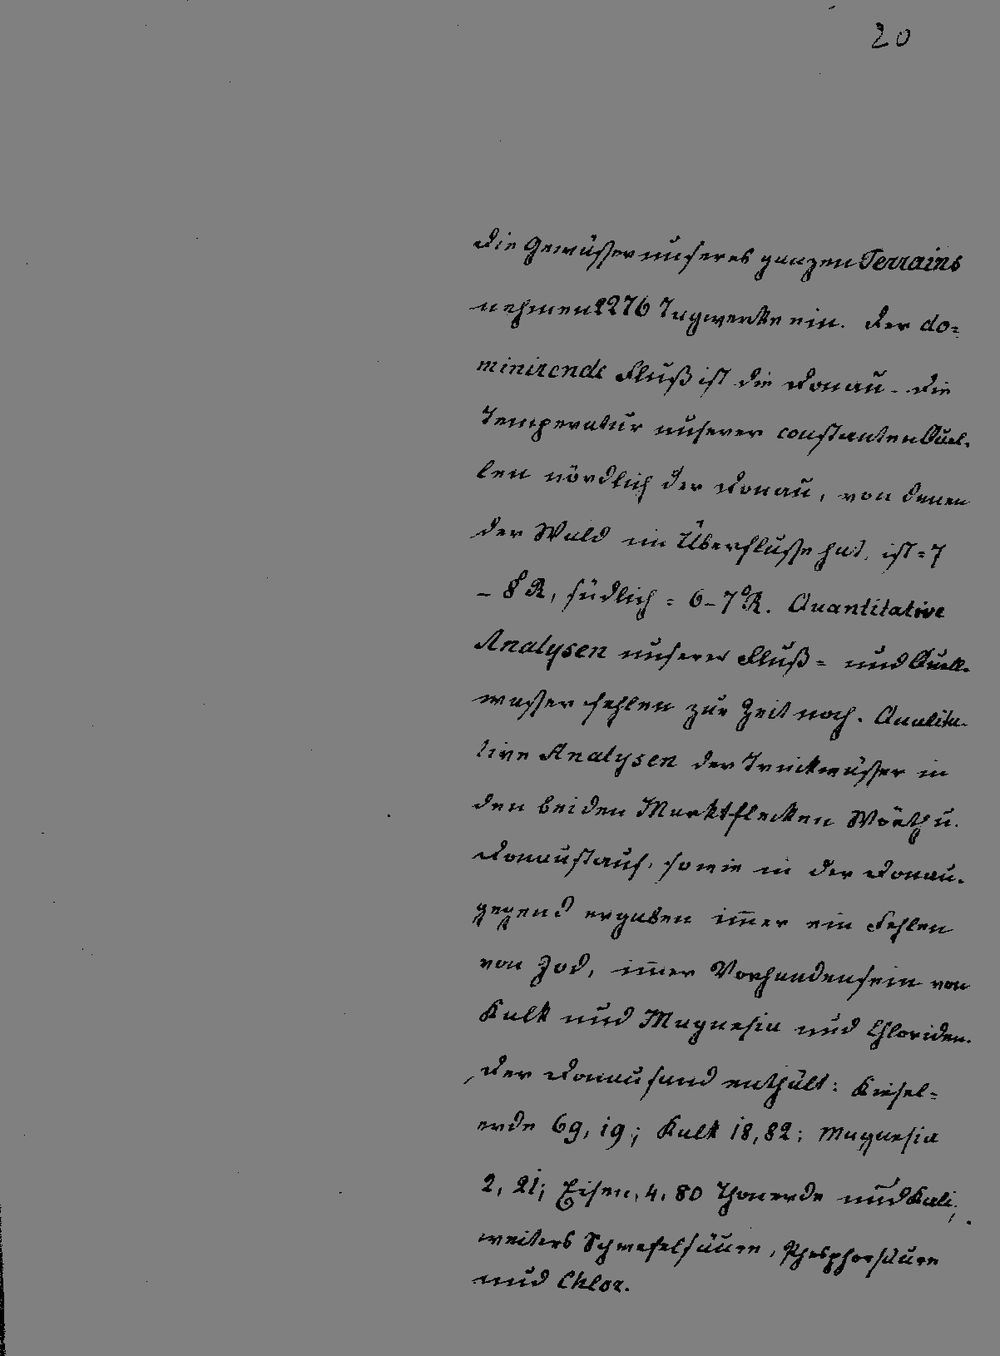 20
Die Gewässer unseres ganzen Terrains
nehmen 2276 Tagwerke ein. Der do-
minirende Fluß ist die Donau. Die
Temperatur unserer constanten Quel-
len nördlich der Donau, von denen
der Wald im Überflusse hat, ist = 7
– 8° R, südlich = 6–7° R. Quantitative
Analysen unserer Fluß- und Quell-
wasser fehlen zur Zeit noch. Qualita-
tive Analysen der Trinkwässer in
den beiden Marktflecken Wörth u.
Donaustauf, sowie in der Donau-
gegend ergaben im̄er ein Fehlen
von Jod, im̄er Vorhandensein von
Kalk und Magnesia und Chloriden.
Der Donausand enthält: Kiesel-
erde 69,19; Kalk 18,82; Magnesia
2,21; Eisen, 4,80 Thonerde und Kali;
weiters Schwefelsäure, Phosphorsäure
und Chlor.